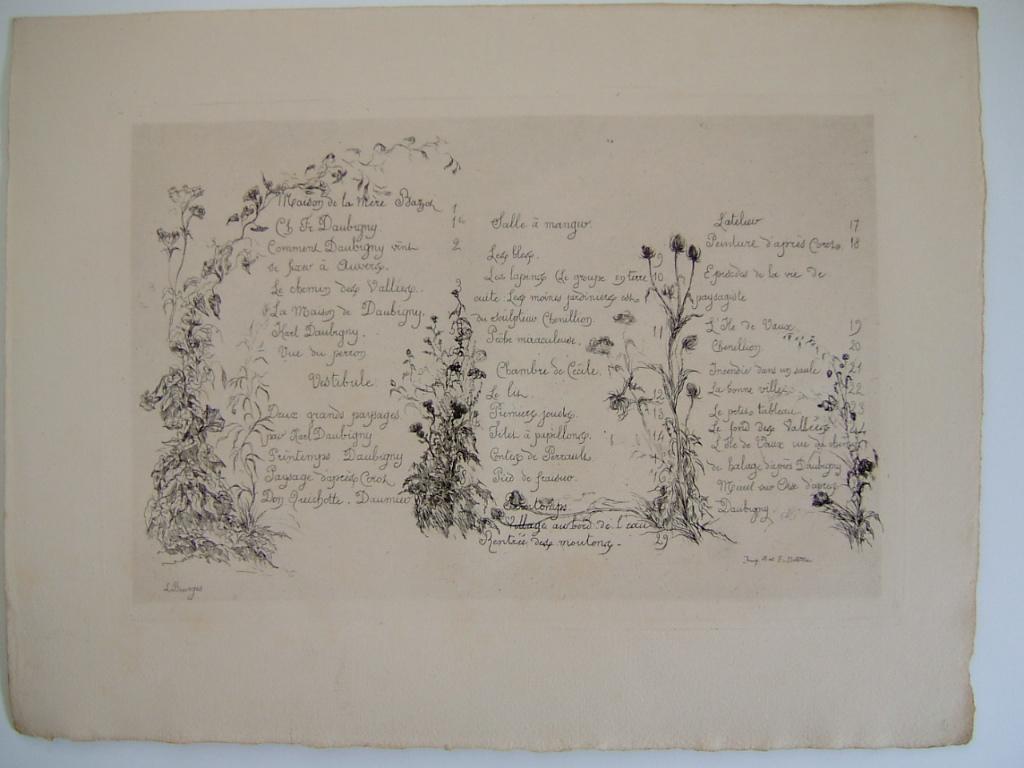 Maison de la Mère Bazot 1
Ch. Fr. Daubigny 1
Comment Daubigny vint 2
se fixer à Auvers.
Le chemin des Vallées.
La Maison de Daubigny.
Karl Daubigny.
Vue du perron
Vestibule
Deux grands paysages
par Karl Daubigny
Printemps Daubigny
Paysage d'après Corot
Don Quichotte. Daumier
Salle à manger.
Les bles. 9
Les lapins (Le groupe en terre 10
cuite: Les moines jardiniers est
du sculpteur Chenillion.
Pêche miraculeuse. 11
Chambre de Cécile.
Le lit. 12
Premiers jouets. 13
Filet à papillons. 14
Contes de Perrault.
Pied de fraisier. 16
Printemps
Village au bord de l'eau
Rentrée des moutons. 29
L'atelier 17
Peinture d'après Corot 18
Episodes de la vie de
paysagiste
L'Ile de Vaux. 19
Chenillion 20
Incendie dans un saule 21
La bonne ville 22
Le petit tableau 23
Le fond des Vallées 24
L'Ile de Vaux vue du chemin
de halage d'après Daubigny
sur Oise d'après
Daubigny
L. Bourges